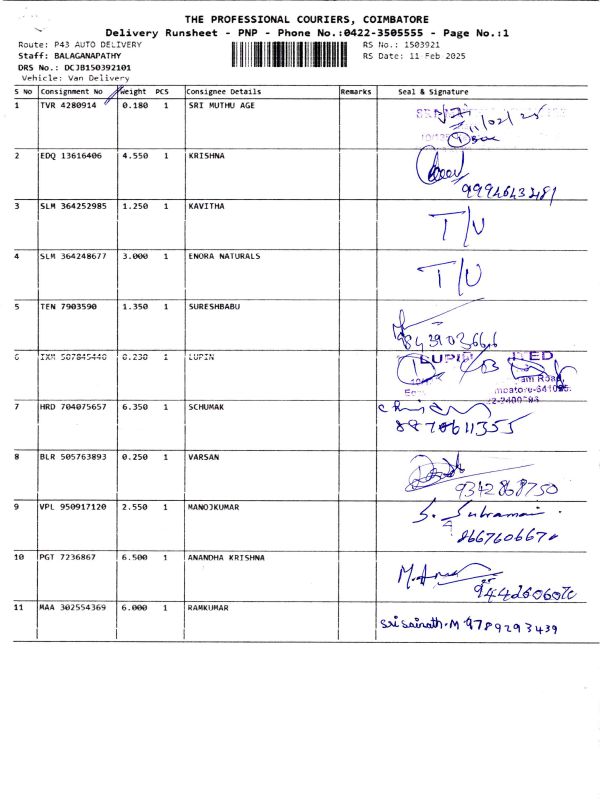 THE PROFESSIONAL COURIERS, COIMBATORE
Delivery Runsheet - PNP - Phone No.:0422-3505555 - Page No.:1
Route: P43 AUTO DELIVERY RS No.: 1503921
Staff: BALAGANAPATHY RS Date: 11 Feb 2025
DRS No.: DCJB150392101
Vehicle: Van Delivery
S No Consignment No Weight PCS Consignee Details Remarks Seal & Signature
1 TVR 4280914 0.180 1 SRI MUTHU AGE
11/02/25
2 EDQ 13616406 4.550 1 KRISHNA
9994643481
3 SLM 364252985 1.250 1 KAVITHA T/U
4 SLM 364248677 3.000 1 ENORA NATURALS T/U
5 TEN 7903590 1.350 1 SURESHBABU
9843903666
6 IXM 507845440 0.230 1 LUPIN
LUPIN
7 HRD 704075657 6.350 1 SCHUMAK
8870611355
8 BLR 505763893 0.250 1 VARSAN
9342868750
9 VPL 950917120 2.550 1 MANOJKUMAR
S.
10 PGT 7236867 6.500 1 ANANDHA KRISHNA
11 MAA 302554369 6.000 1 RAMKUMAR Sri Sairath.M 9789293439